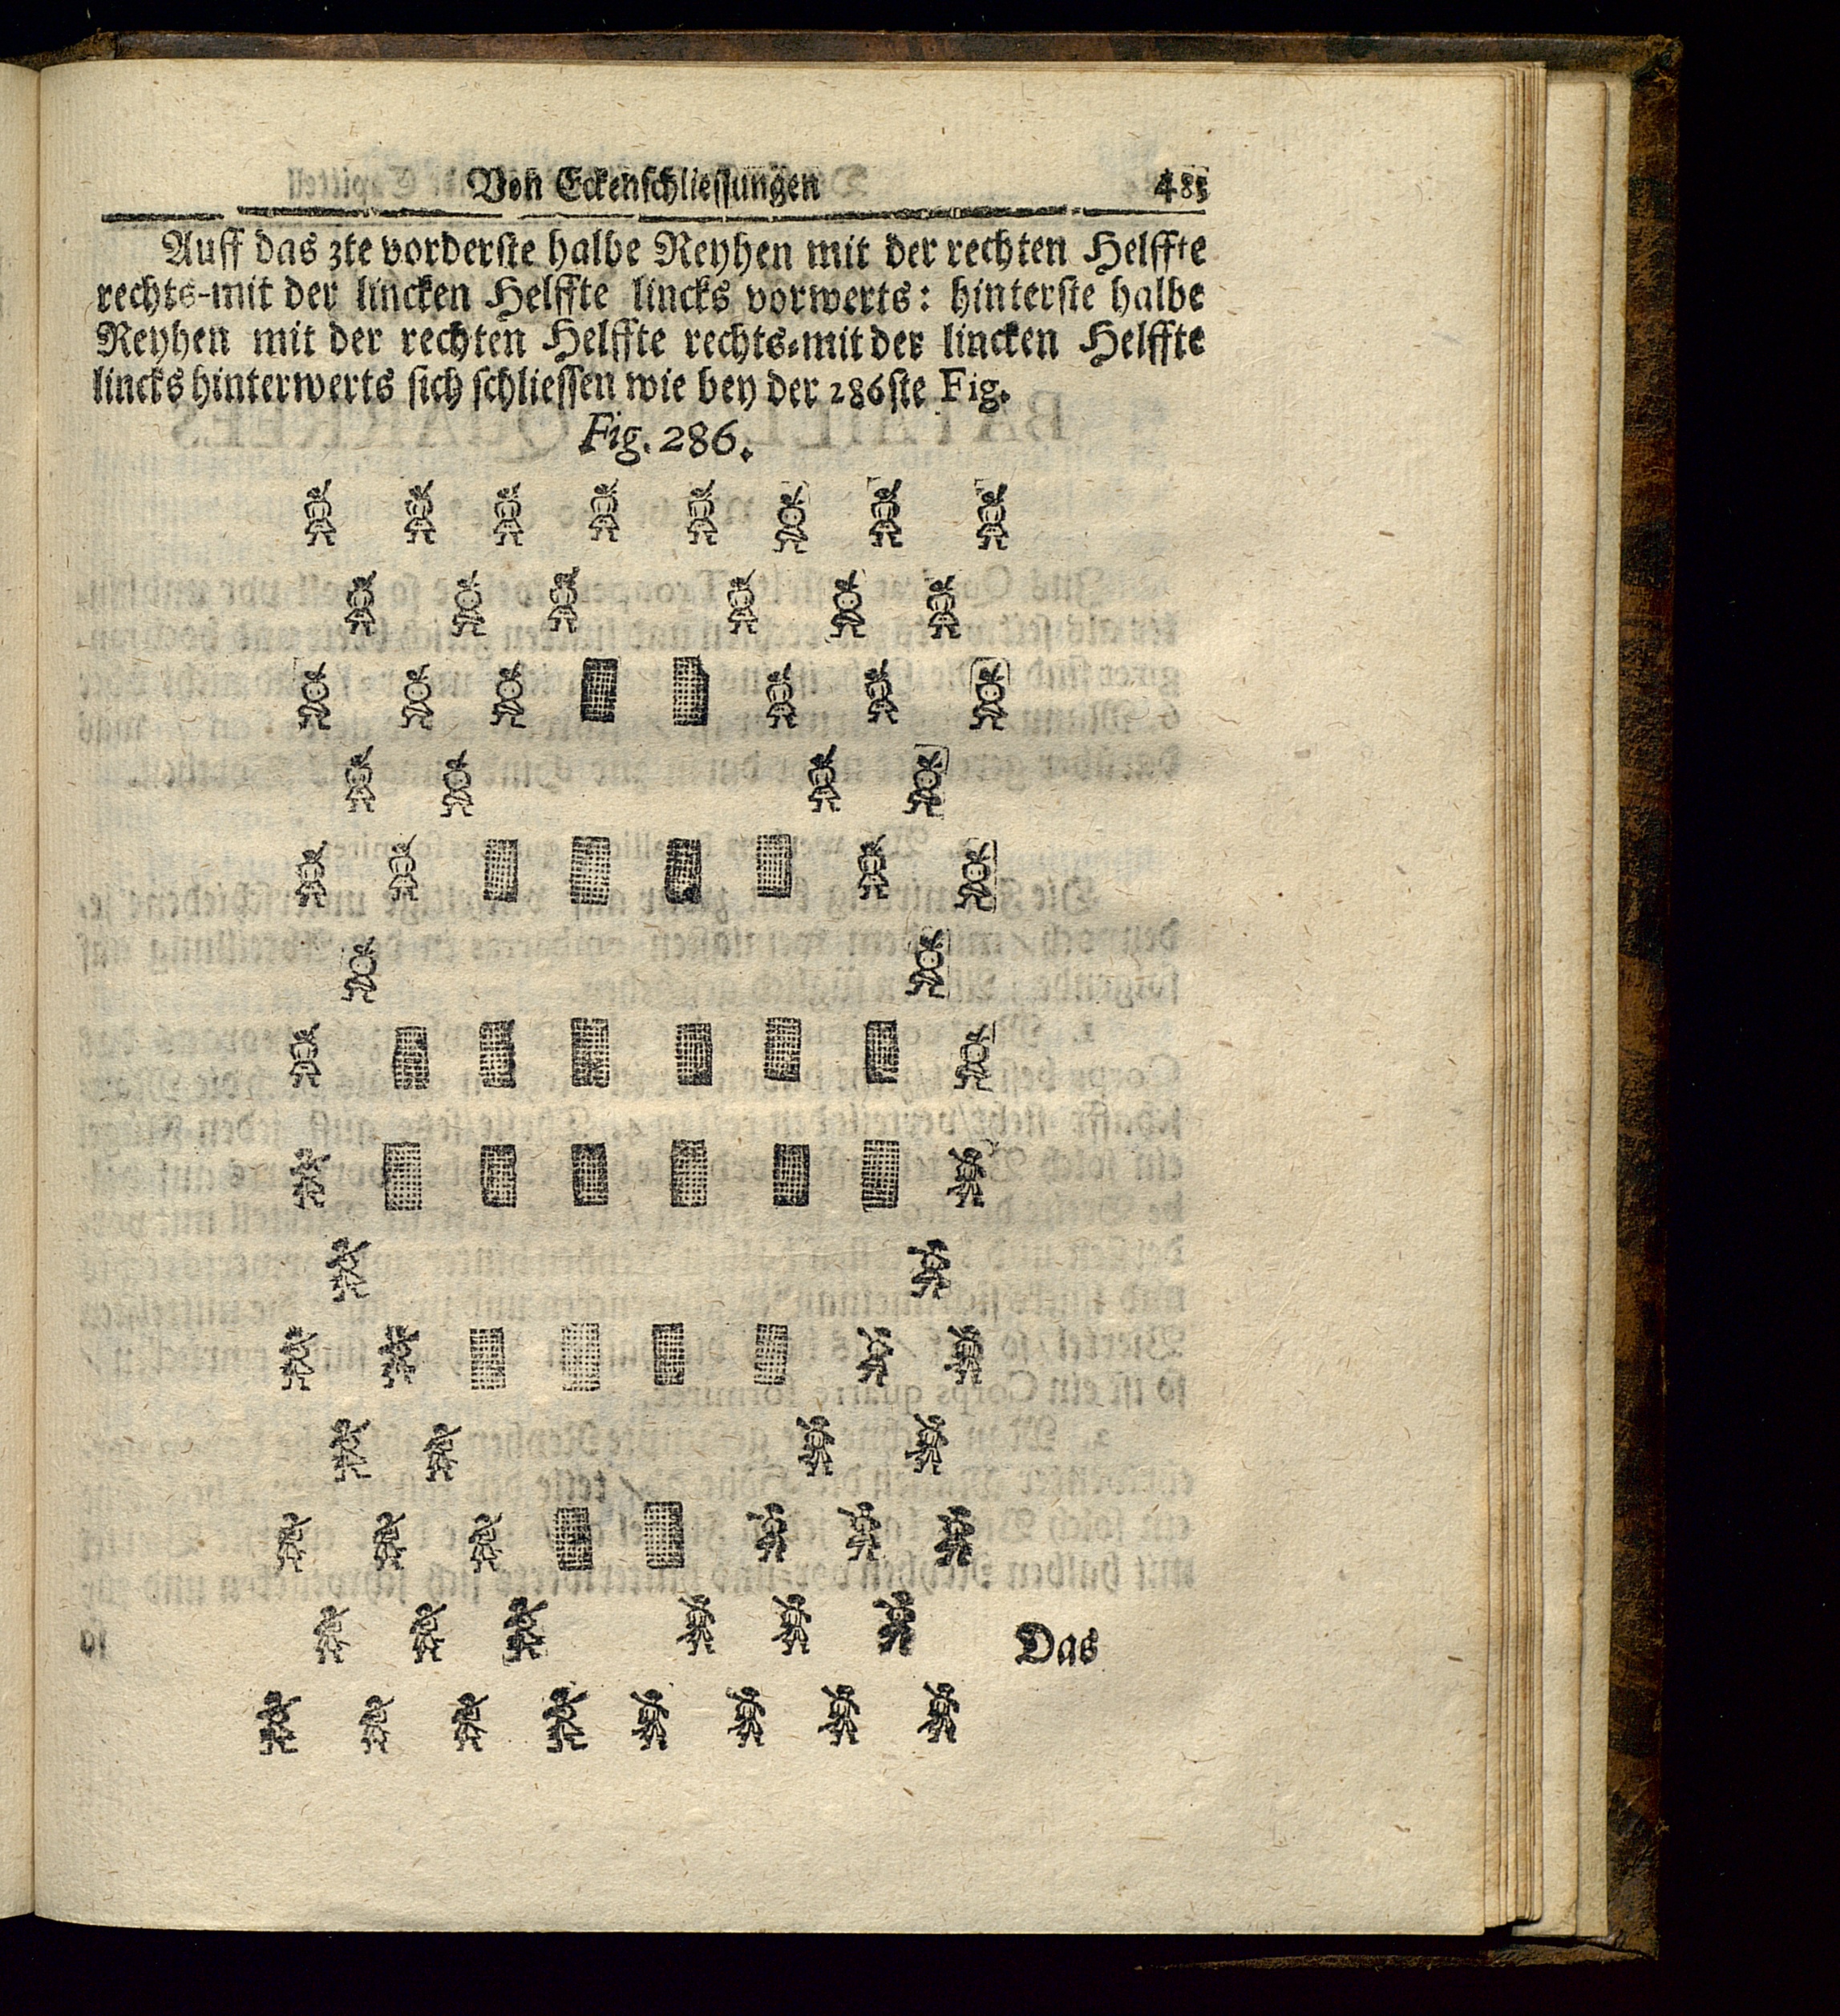 Von Eckenschliessungen 485
Auff das 3te vorderste halbe Reyhen mit der rechten Helffte
rechts-mit der lincken Helffte lincks vorwerts: hinterste halbe
Reyhen mit der rechten Helffte rechts-mit der lincken Helffte
lincks hinterwerts sich schliessen wie bey der 286ste Fig.
Fig. 286.
Das